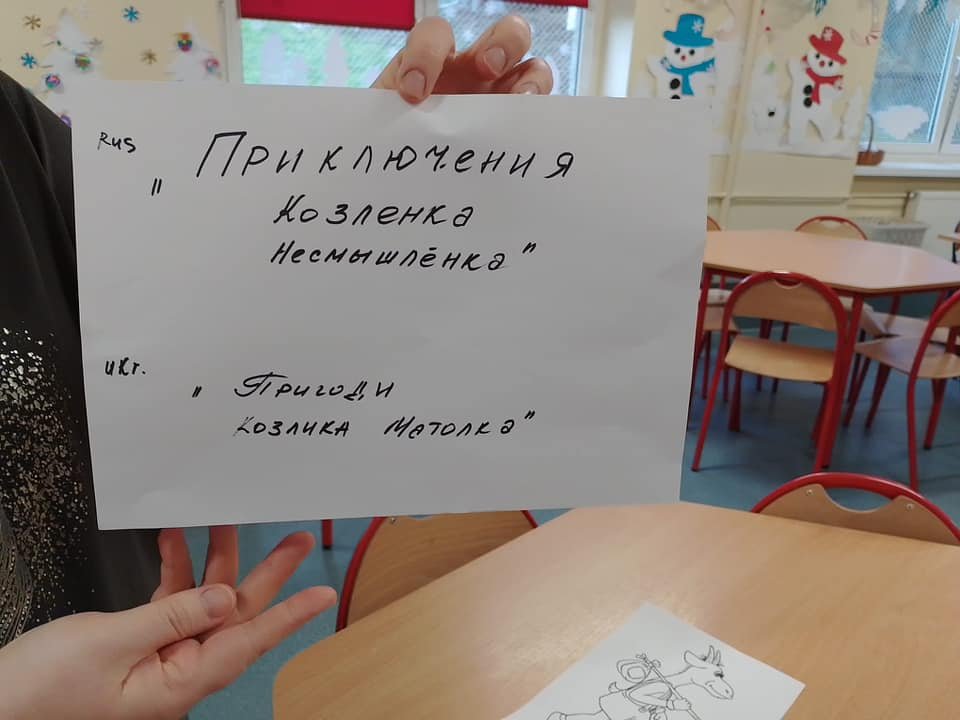 Rus
„ Приключения
Козленка
Несмышлёнка"
Ukr.
„ Пригоди
Козлика Матолка"